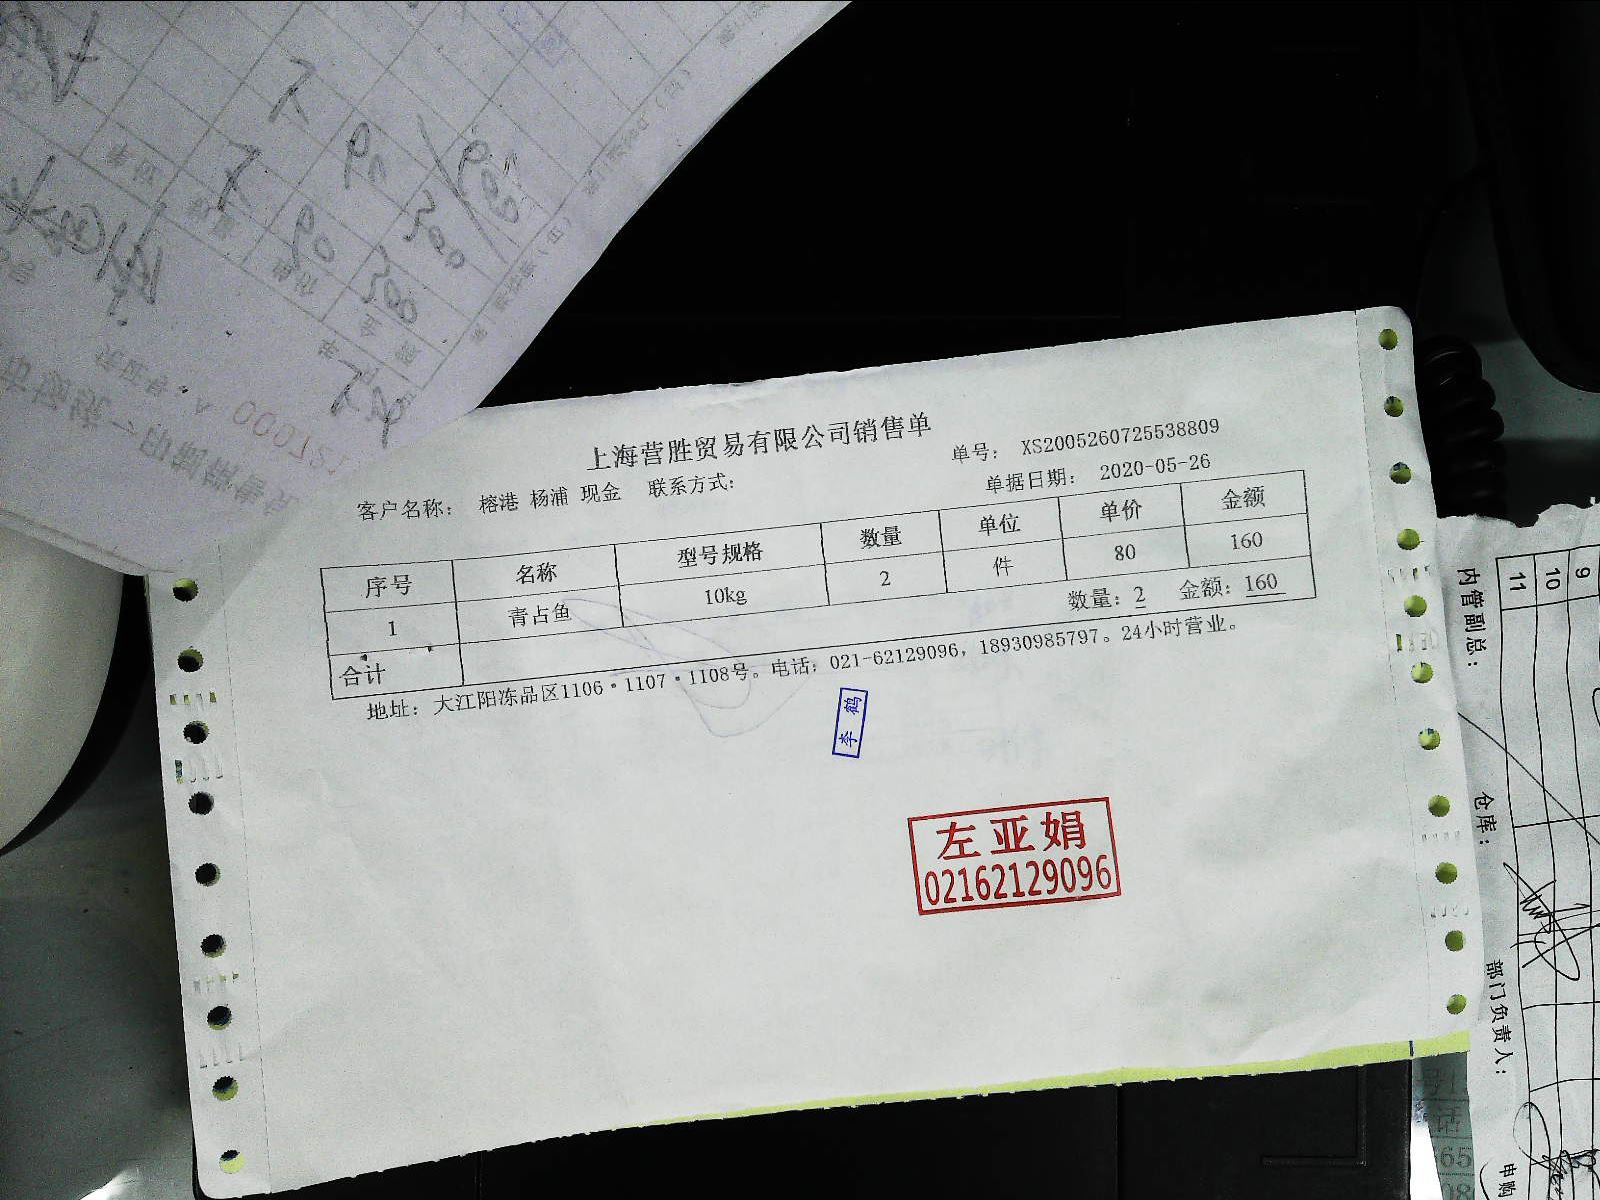 上海营胜贸易有限公司销售单
单号： XS2005260725538809
客户名称： 榕港 杨浦 现金 联系方式：
单据日期： 2020-05-26
序号 名称 型号规格 数量 单位 单价 金额
1 青占鱼 10kg 2 件 80 160
合计 数量：2 金额：160
地址：大江阳冻品区1106·1107·1108号。电话：021-62129096，18930985797。24小时营业。
李鹤
左亚娟
02162129096
11
10
9
内管副总：
仓库：
部门负责人：
申购